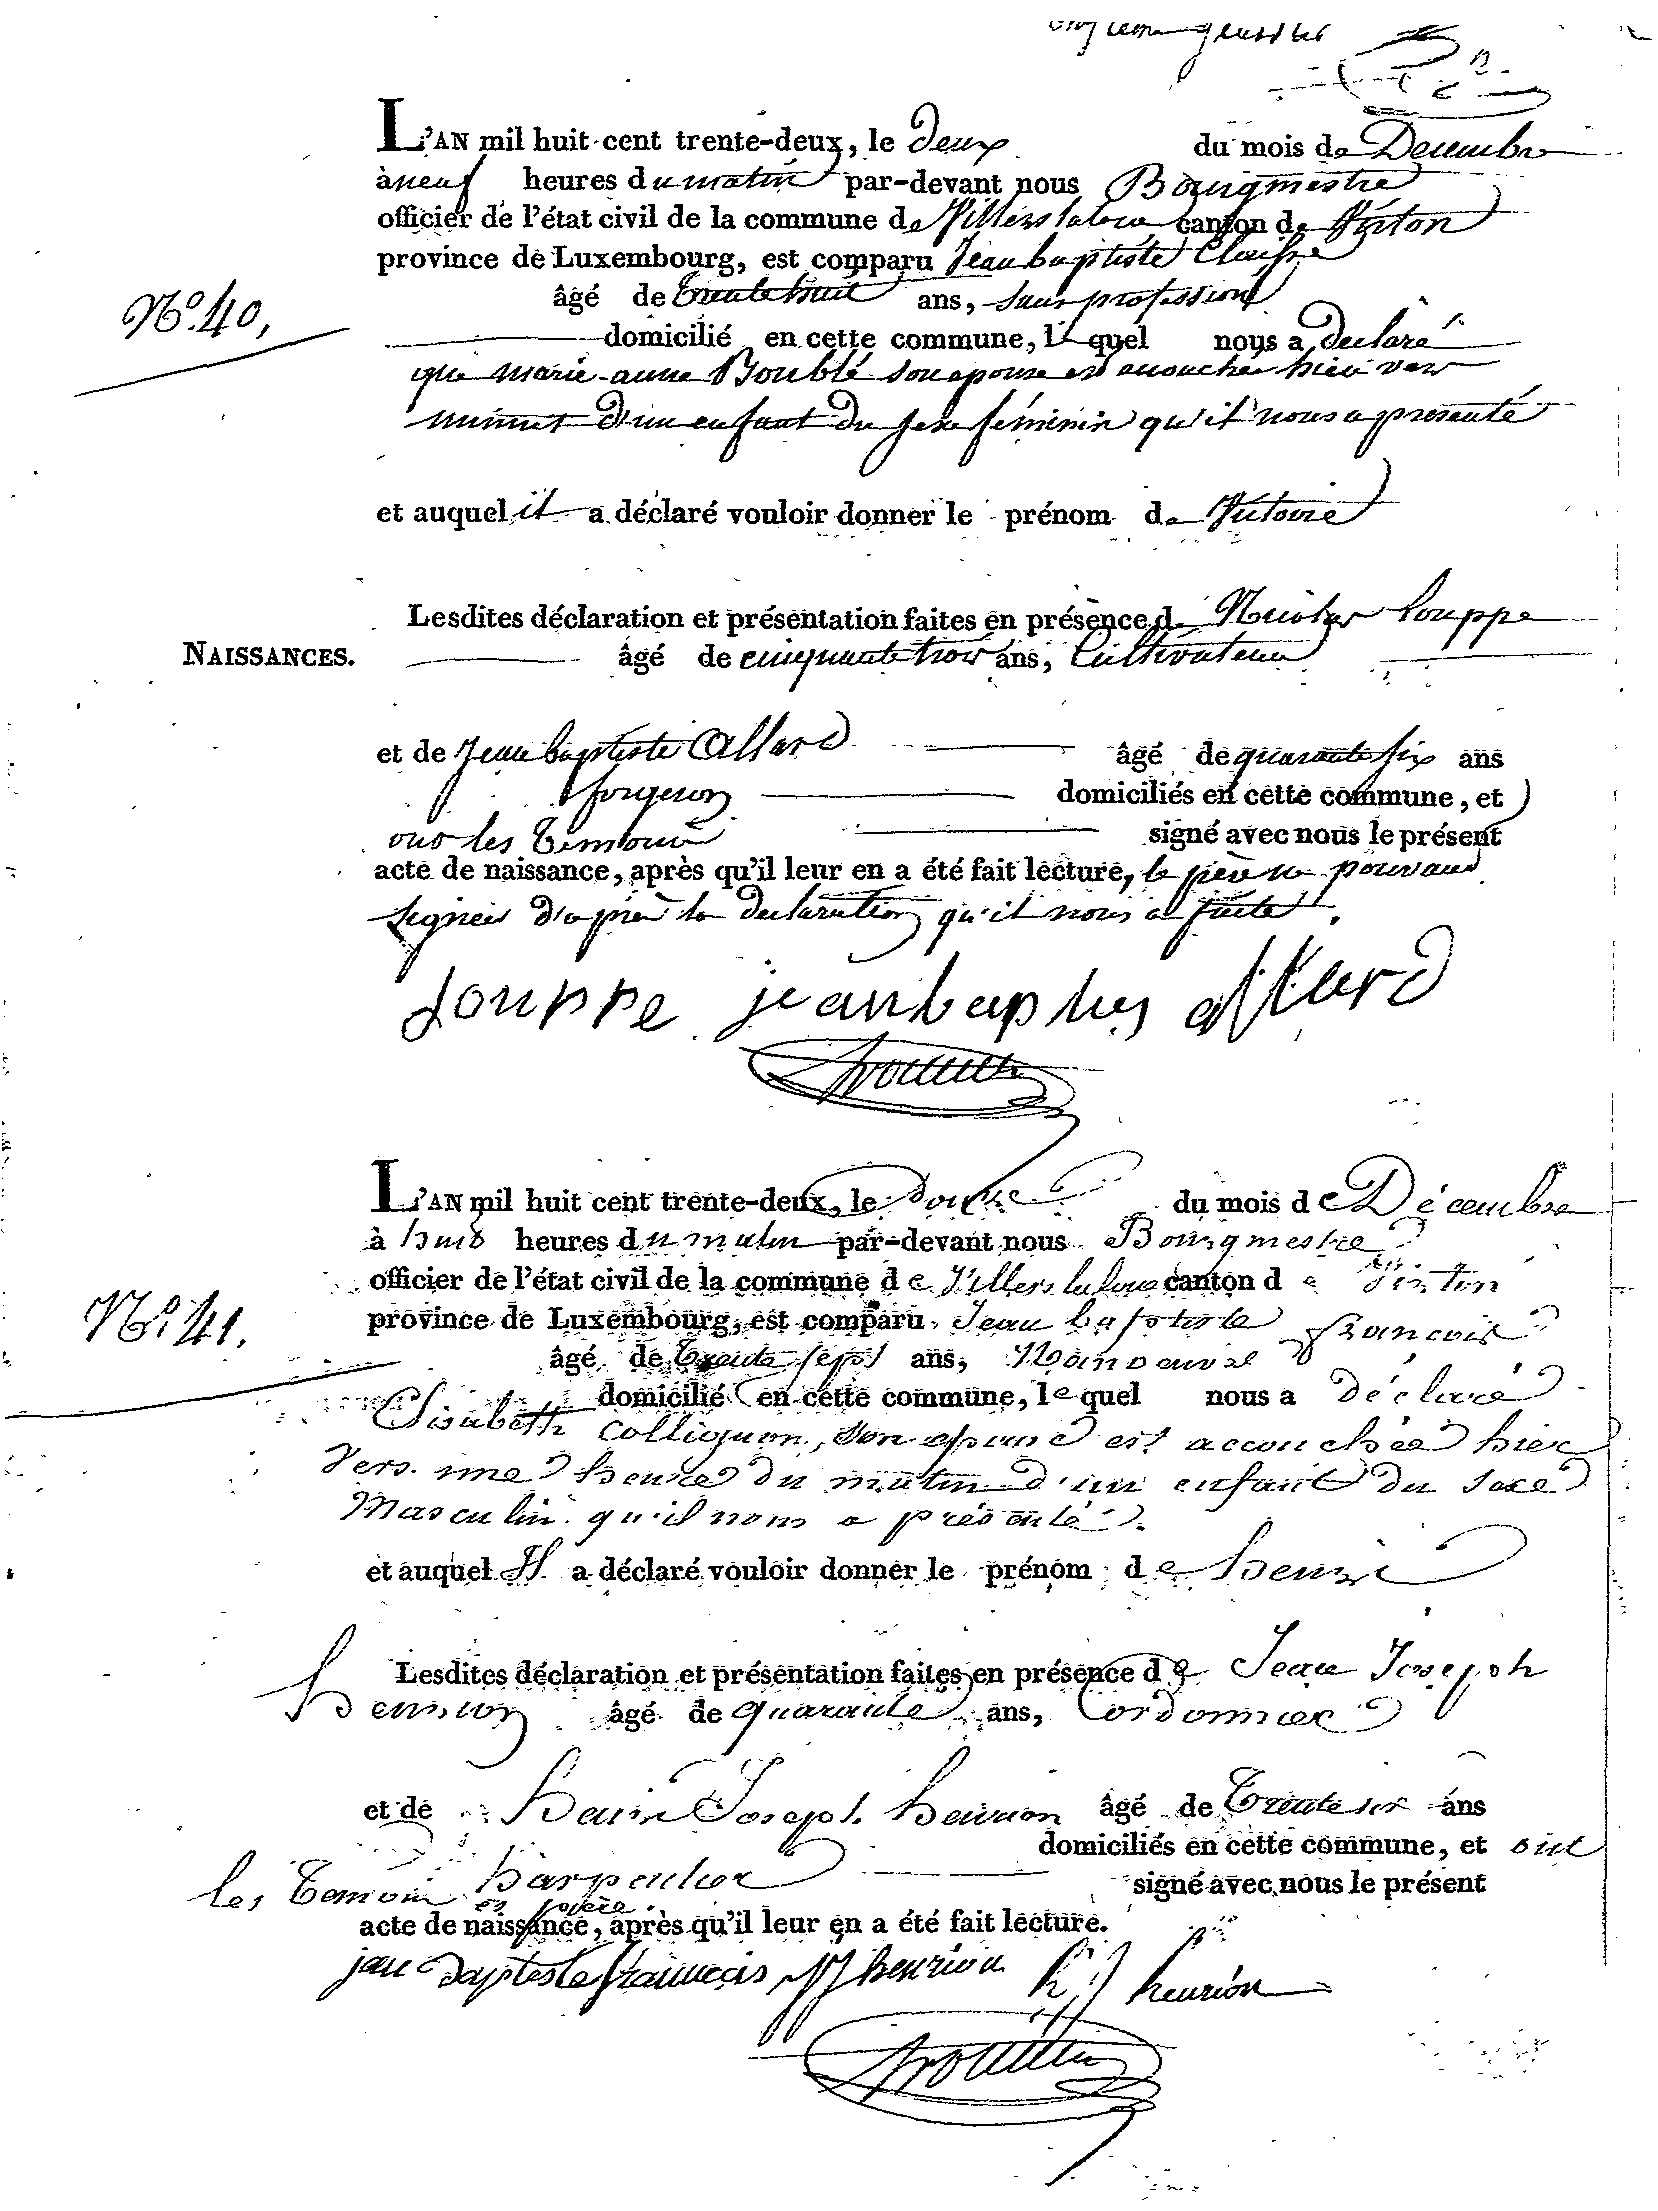 L'AN mil huit cent trente-deux, le deux du mois de Decembre
à neuf heures du matin par-devant nous Bourgmestre
officier de l'état civil de la commune de Villers laloue canton de Virton
province de Luxembourg, est comparu Jean baptiste Claisse
âgé de trente huit ans, sans profession
No. 40,
domicilié en cette commune, lequel nous a declaré
que marie anne Boublé son epouse est accouchée hier vers
minuit d'un enfant du sexe féminin qu'il nous a presenté
et auquel il a déclaré vouloir donner le prénom de Victoire
Lesdites déclaration et présentation faites en présence de Nicolas Gouppe
NAISSANCES. âgé de cinquante trois ans, Cultivateur
et de Jean baptiste Allard âgé de quarante six ans
forgeron domiciliés en cette commune, et
ont les temoins signé avec nous le présent
acte de naissance, après qu'il leur en a été fait lecture, le père ne pouvant
signer d'après la declaration qu'il nous a faite.
jean baptis allard
L'AN mil huit cent trente-deux, le douze du mois de Décembre
à huit heures du matin par-devant nous Bourgmestre
officier de l'état civil de la commune de Villers laloue canton de Virton
No. 41.
province de Luxembourg, est comparu Jean baptiste François
âgé de trente sept ans, Manoeuvre
domicilié en cette commune, lequel nous a déclaré
Elisabeth Collignon, son epouse est accouchée hier
vers une heure du matin d'un enfant du sexe
Masculin qu'il nous a présenté.
et auquel Il a déclaré vouloir donner le prénom de henri
Lesdites déclaration et présentation faites en présence de Jean Joseph
henrion âgé de quarante ans, Cordonnier
et de henri Joseph henrion âgé de trente six ans
domiciliés en cette commune, et ont
les temoin harpentier signé avec nous le présent
et père.
acte de naissance, après qu'il leur en a été fait lecture.
jean baptiste francois JJ henrion h j henrion